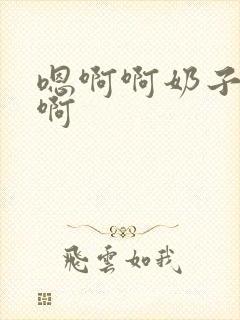 嗯啊啊奶子
啊
飛雲如我